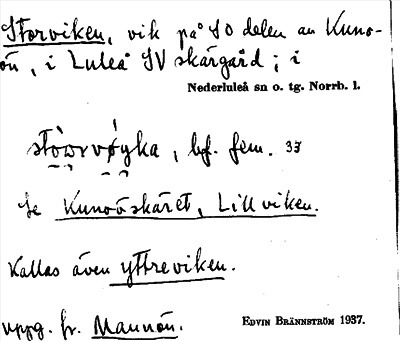 Storviken, vik på SO delen av Kuno-
ön, i Luleå SV skärgård; i
Nederluleå sn o. tg. Norrb. l.
bf. fem. 37
Se Kunoöskäret, Lillviken.
Kallas även yttreviken.
uppg. fr. Mannön.
EDVIN BRÄNNSTRÖM 1937.